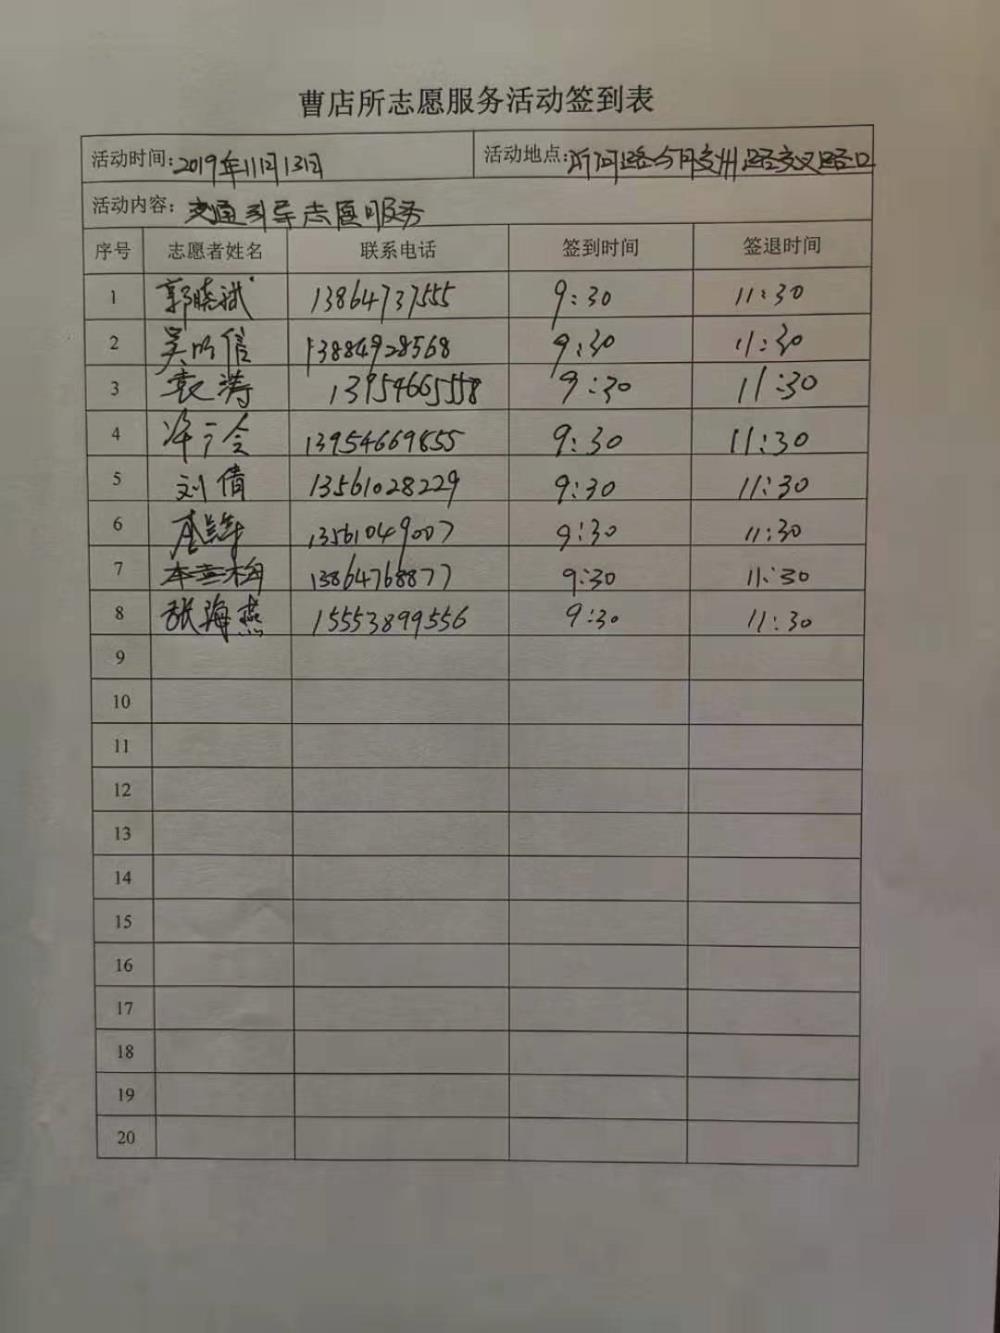 曹店所志愿服务活动签到表
活动时间:2019年11月13日 活动地点:沂河路与胶州路交叉路口
活动内容:交通引导志愿服务
序号 志愿者姓名 联系电话 签到时间 签退时间
1 郭晓斌 13864737555 9:30 11:30
2 吴明信 13884928568 9:30 11:30
3 袁涛 13954665558 9:30 11:30
4 13954669855 9:30 11:30
5 刘倩 13561028229 9:30 11:30
6 13561049007 9:30 11:30
7 13864768877 9:30 11:30
8 张海燕 15553899556 9:30 11:30
9
10
11
12
13
14
15
16
17
18
19
20